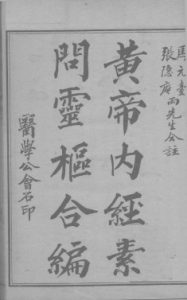 馬元臺
張隱庵兩先生合註
黃帝內經素
問靈樞合編
醫學公會石印